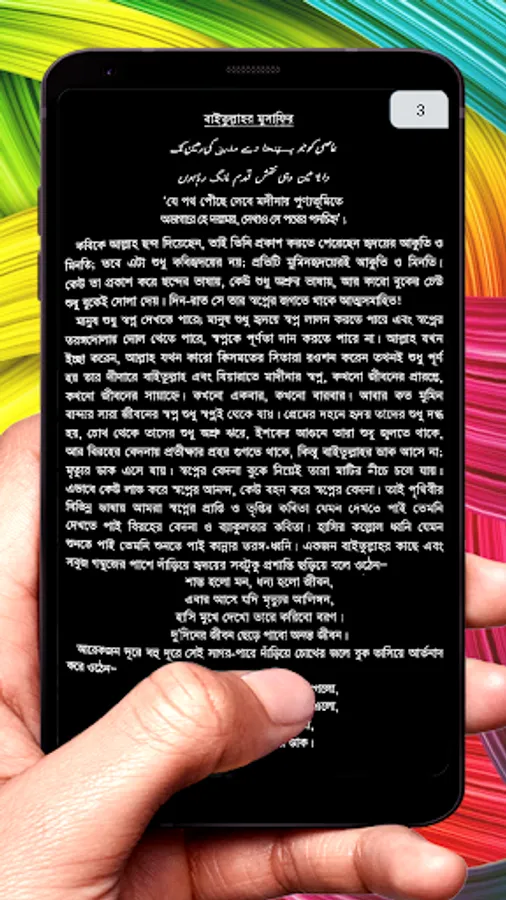 3
বাইতুল্লাহর মুসাফির
'যে পথ পৌঁছে দেবে মদীনার পুণ্যভূমিতে
আমারে হে দয়াময়, দেখাও সে পথের পদচিহ্ন'।
কবিকে আল্লাহ ছন্দ দিয়েছেন, তাই তিনি প্রকাশ করতে পেরেছেন হৃদয়ের আকুতি ও
মিনতি; তবে এটা শুধু কবিহৃদয়ের নয়; প্রতিটি মুমিনহৃদয়েরই আকুতি ও মিনতি।
কেউ তা প্রকাশ করে ছন্দের ভাষায়, কেউ শুধু অশ্রুর ভাষায়, আর কারো বুকের ঢেউ
শুধু বুকেই দোলা দেয়। দিন-রাত সে তার স্বপ্নের জগতে থাকে আত্মসমাহিত!
মানুষ শুধু স্বপ্ন দেখতে পারে; মানুষ শুধু হৃদয়ে স্বপ্ন লালন করতে পারে এবং স্বপ্নের
তরঙ্গদোলার দোল খেতে পারে, স্বপ্নকে পূর্ণতা দান করতে পারে না। আল্লাহ যখন
ইচ্ছা করেন, আল্লাহ যখন কারো কিসমতের সিতারা রওশন করেন তখনই শুধু পূর্ণ
হয় তার দীদারে বাইতুল্লাহ এবং যিয়ারাতে মাদীনার স্বপ্ন, কখনো জীবনের প্রারম্ভে,
কখনো জীবনের সায়াহ্নে। কখনো একবার, কখনো বারবার। আবার কত মুমিন
বান্দার সারা জীবনের স্বপ্ন শুধু স্বপ্নই থেকে যায়। প্রেমের দহনে হৃদয় তাদের শুধু দগ্ধ
হয়, চোখ থেকে তাদের শুধু অশ্রু ঝরে, ইশকের আগুনে তারা শুধু জ্বলতে থাকে,
আর বিরহের বেদনায় প্রতীক্ষার প্রহর গুণতে থাকে, কিন্তু বাইতুল্লাহর ডাক আসে না;
মৃত্যুর ডাক এসে যায়। স্বপ্নের বেদনা বুকে নিয়েই তারা মাটির নীচে চলে যায়।
এভাবে কেউ লাভ করে স্বপ্নের আনন্দ, কেউ বহন করে স্বপ্নের বেদনা। তাই পৃথিবীর
বিভিন্ন ভাষায় আমরা স্বপ্নের প্রাপ্তি ও তৃপ্তির কবিতা যেমন দেখতে পাই তেমনি
দেখতে পাই বিরহের বেদনা ও ব্যাকুলতার কবিতা। হাসির কল্লোল ধ্বনি যেমন
শুনতে পাই তেমনি শুনতে পাই কান্নার তরঙ্গ-ধ্বনি। একজন বাইতুল্লাহর কাছে এবং
সবুজ গম্বুজের পাশে দাঁড়িয়ে হৃদয়ের সবটুকু প্রশান্তি ছড়িয়ে বলে ওঠেন–
শান্ত হলো মন, ধন্য হলো জীবন,
এবার আসে যদি মৃত্যুর আলিঙ্গন,
হাসি মুখে দেখো তারে করিবো বরণ।
দু'দিনের জীবন ছেড়ে পাবো অনন্ত জীবন।
আরেকজন দূরে বহু দূরে সেই সাগর-পারে দাঁড়িয়ে চোখের জলে বুক ভাসিয়ে আর্তনাদ
করে ওঠেন–
ডাক।